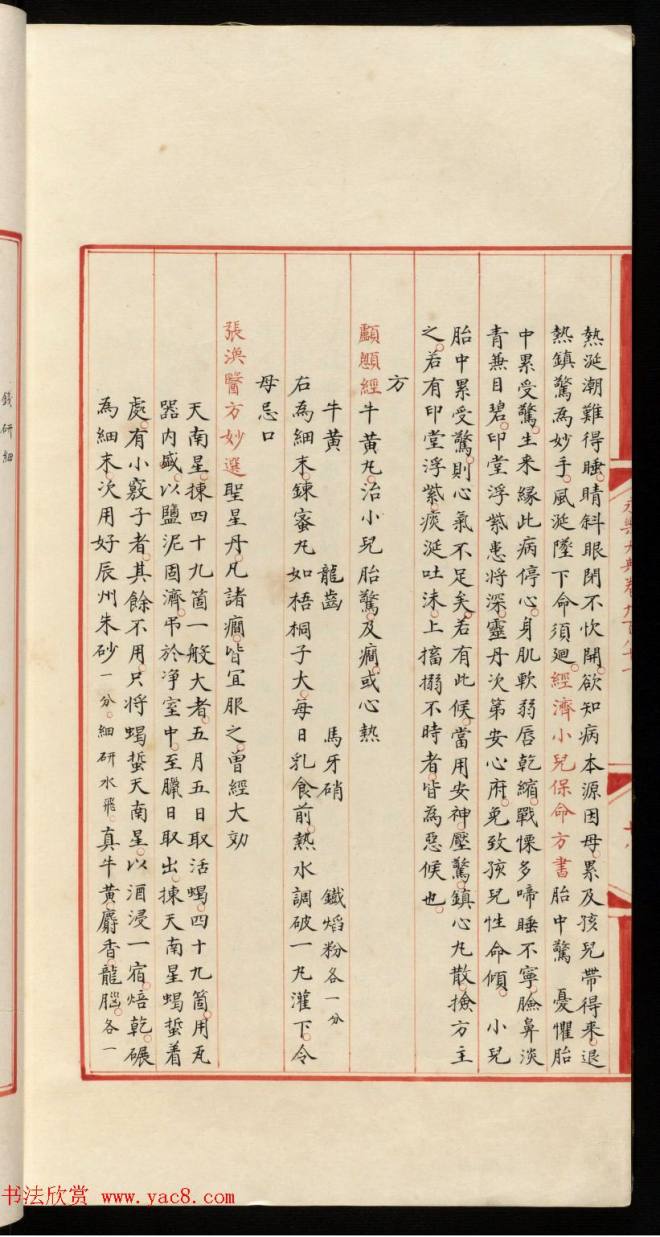 熱涎潮難得睡睛斜眼閉不忺開欲知病本源因母累及孩兒帶得來退
熱鎮驚為妙手風涎墜下命須廻經濟小兒保命方書胎中驚憂懼胎
中累受驚生來緣此病停心身肌軟弱唇乾縮戰慄多啼睡不寧臉鼻淡
青兼目碧印堂浮紫患將深靈丹次第安心府免致孩兒性命傾小兒
胎中累受驚則心氣不足矣若有此候當用安神壓驚鎮心丸散撿方主
之若有印堂浮紫痰涎吐沫上搐搦不時者皆為惡候也
方
顱顖經牛黃丸治小兒胎驚及癎或心熱
牛黃 龍齒 馬牙硝 鐵焰粉各一分
右為細末鍊蜜丸如梧桐子大每日乳食前熱水調破一丸灌下令
母忌口
張渙醫方妙選聖星丹凡諸癎皆宜服之曾經大効
天南星揀四十九箇一般大者五月五日取活蝎四十九箇用瓦
器內盛以鹽泥固濟弔於净室中至臘日取出揀天南星蝎蜇着
處有小竅子者其餘不用只將蝎蜇天南星以酒浸一宿焙乾碾
為細末次用好辰州朱砂一分細研水飛真牛黃麝香龍腦各一
錢研細
永樂大典卷九百
书法欣赏 www.yac8.com